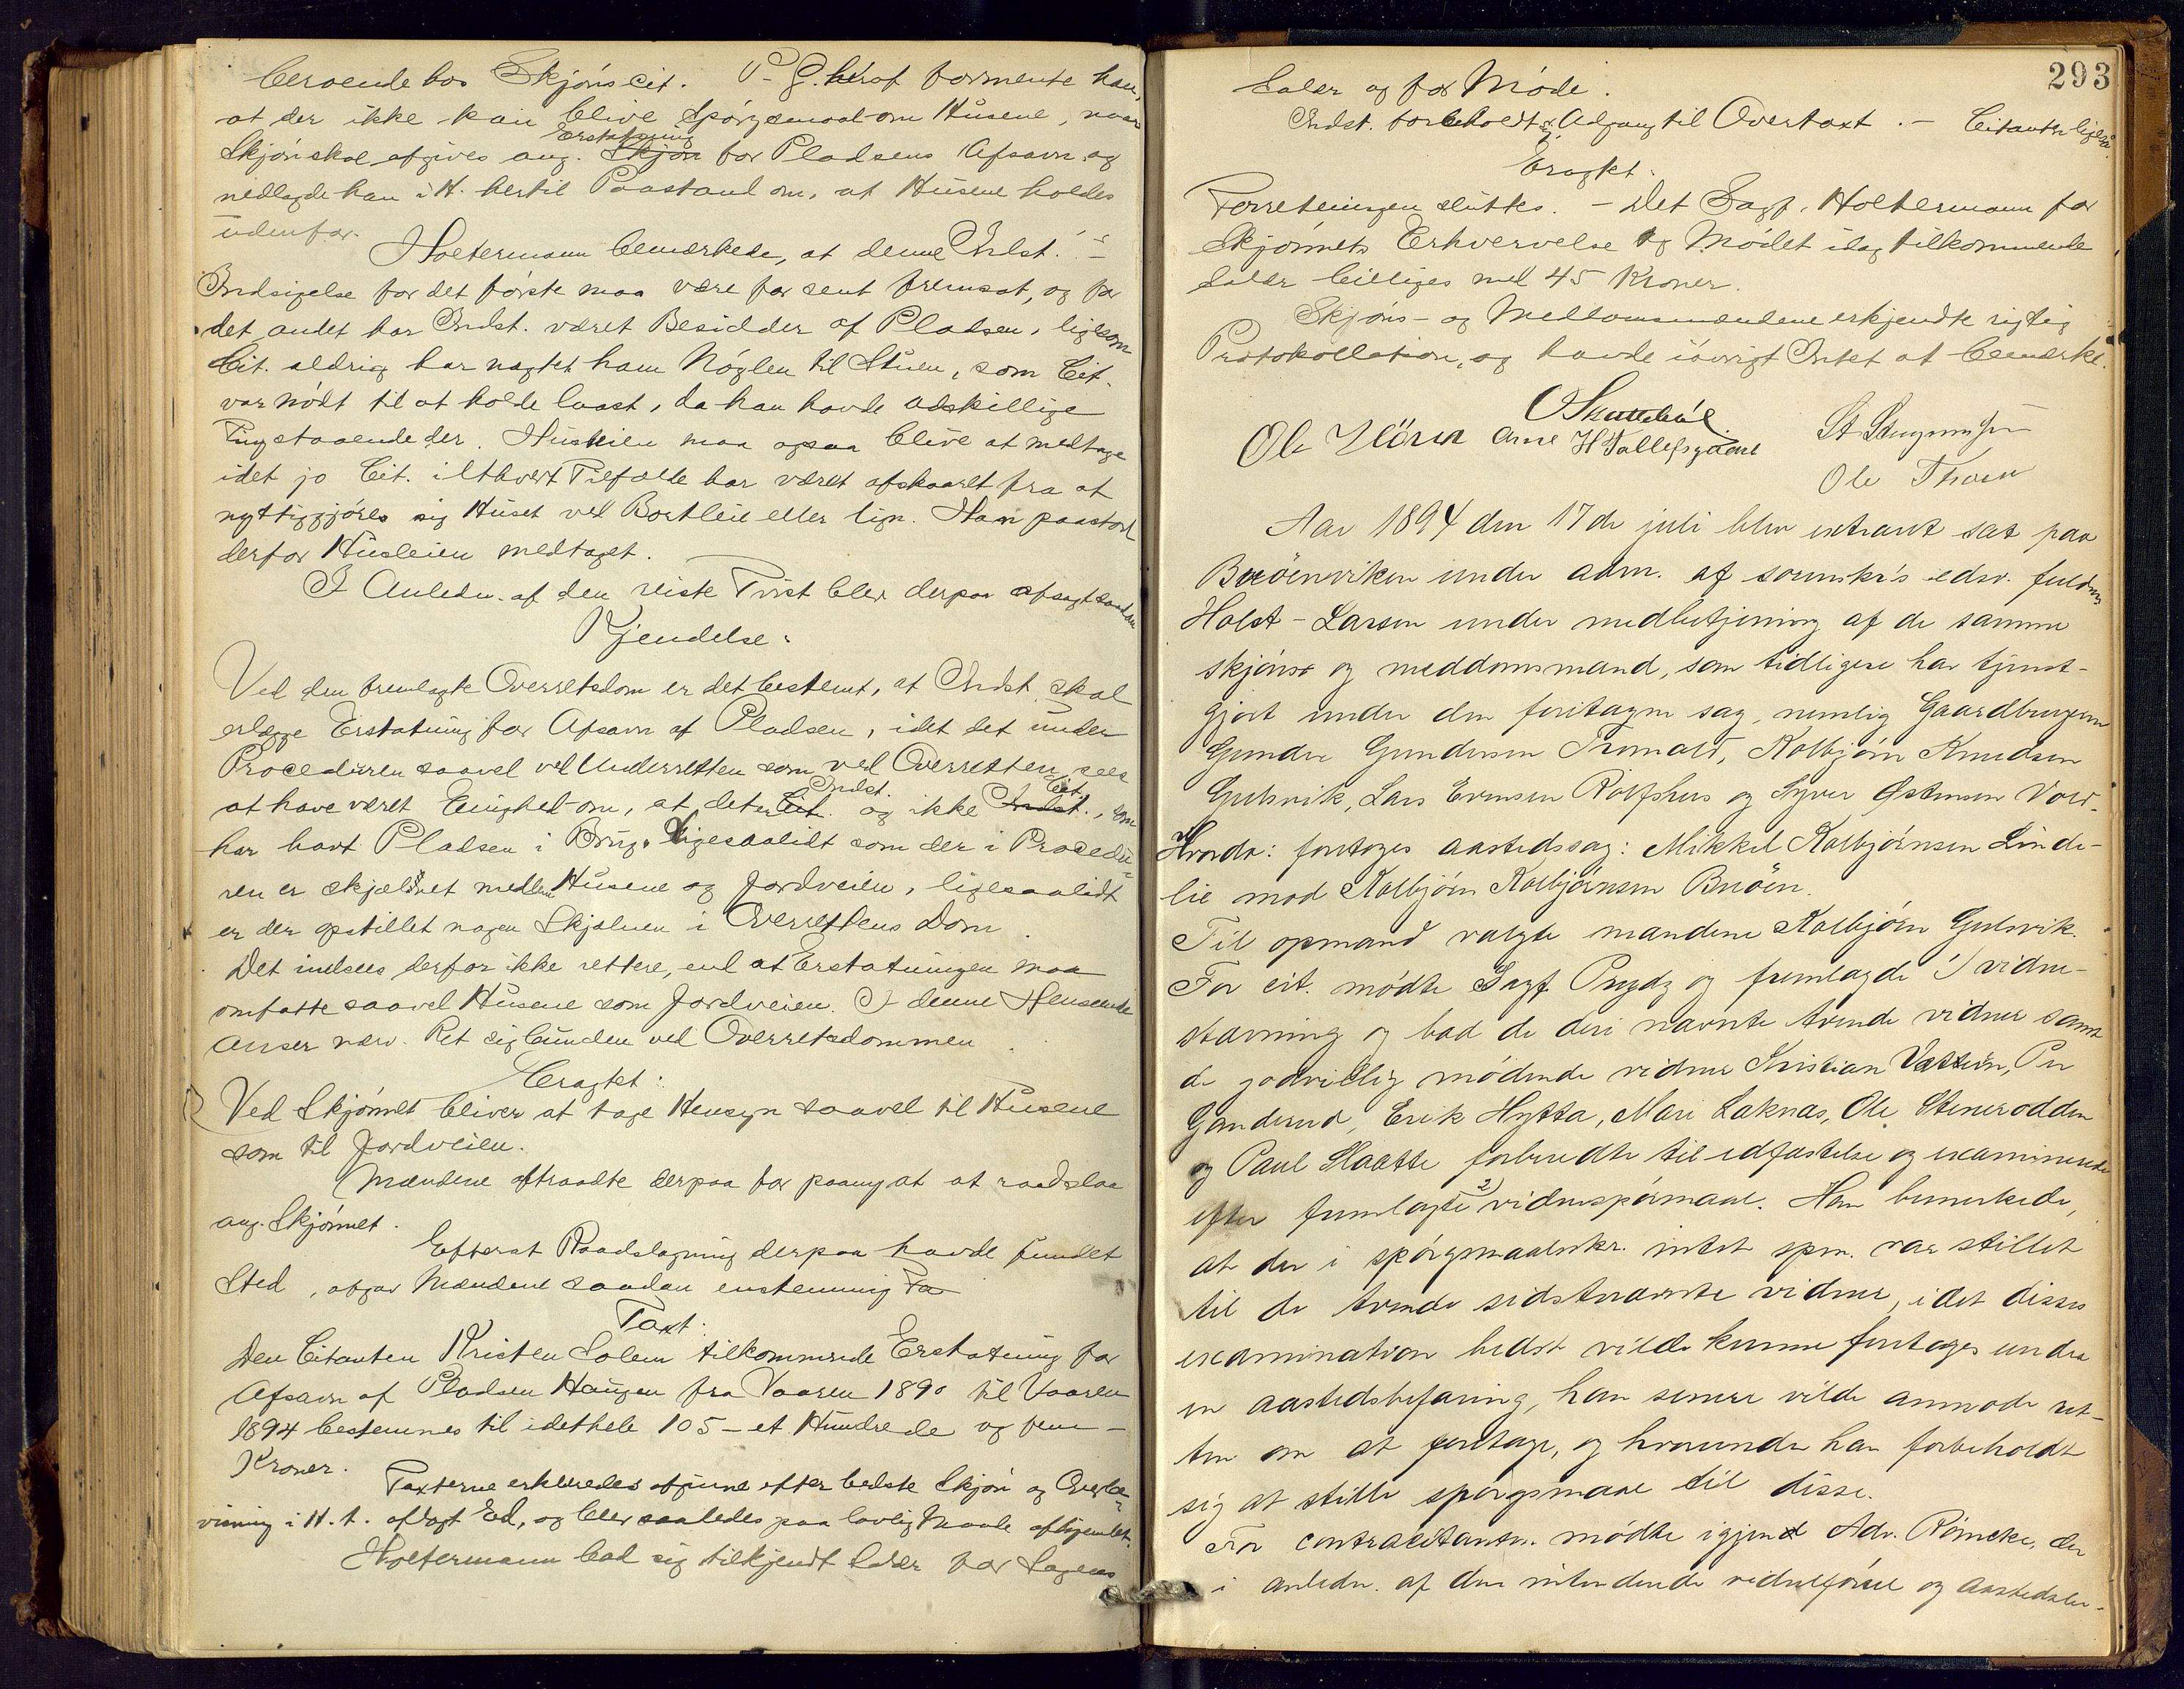 beroende hos Skjønscit. P. G. heraf formente han,
at der ikke kan blive Spørgsmaal om Husene, naar
Erstatning
Skjøn skal afgives ang. Skjøn for Pladsens Afsavn og
nedlagde han i H. hertil Paastand om, at Husene holdes
udenfor.
Holtermann bemærkede, at denne Indst.'s
Indsigelse for det første maa være for sent fremsat, og for
det andet har Indst. været Besidder af Pladsen, ligesom
Cit. aldrig har nægtet ham Nøglen til Stuen, som Cit.
var nødt til at holde laast, da han havde adskillige
Ting staaende der. Husleien maa ogsaa blive at medtage
idet jo Cit. i ethvert Tilfælde har været afskaaret fra at
nyttiggjøre sig Huset ved Bortleie eller lign. Han paastod
derfor Husleien medtaget.
I Anledn. af den reiste Tvist blev derpaa afsagt saadan
Kjendelse:
Ved den fremlagte Overretsdom er det bestemt, at Indst. skal
erlægge Erstatning for Afsavn af Pladsen, idet det under
Proceduren saavel ved Underretten som ved Overretten sees
Indst. Cit.
at have været Enighed om, at det er Cit. og ikke Indst., som
har havt Pladsen i Brug. Ligesaalidt som der i Procedu-
ren er skjælnet mellem Husene og Jordveien, ligesaalidt
er der opstillet nogen Skjelnen i Overrettens Dom.
Det indsees derfor ikke rettere, end at Erstatningen maa
omfatte saavel Husene som Jordveien. I denne Henseende
anser nærv. Ret sig bunden ved Overretsdommen.
Eragtet:
Ved Skjønnet bliver at tage Hensyn saavel til Husene
som til Jordveien.
Mændene aftraadte derpaa for paany at raadslaa
ang. Skjønnet.
Efterat Raadslagning derpaa havde fundet
Sted, afgav Mændene saadan enstemmig Ta
Taxt:
Den Citanten Kristen Solem tilkommende Erstatning for
Afsavn af Pladsen Haugen fra Vaaren 1890 til Vaaren
1894 bestemmes til i det hele 105 - et Hundrede og fem -
Kroner.
Taxterne erklæredes afgivne efter bedste Skjøn og Overbe-
visning i H. t. aflagt Ed, og blev saaledes paa lovlig Maade afhjemlet.
Holtermann bad sig tilkjendt Salær for Sagens
293
Salær og for Møde.
Indst. forbeholdt sig Adgang til Overtaxt. - Citanten ligesaa.
Eragtet:
Forretningen sluttes. - Det Sagf. Holtermann for
Skjønnets Erhvervelse og Mødet idag tilkommende
Salær billiges med 45 Kroner.
Skjøns- og Meddomsmændene erkjendte rigtig
Protokollation, og havde iøvrigt Intet at bemærke.
Ole Arne H Tollefsgaard
Ole Thoen
Aar 1894 den 17de juli blev extraret sat paa
Bröenviken under adm. af sorenskr's edsv. fuldm.
Holst-Larsen under medbetjening af de samme
skjøns og meddomsmænd, som tidligere har tjenst-
gjort under den foretagne sag, nemlig Gaardbrugerne
Gunder Gundersen Tromald, Kolbjørn Knudsen
Gulsvik, Lars Evensen Rolfshus og Syver Østensen Vold.
Hvorda: foretoges aastedssag: Mikkel Kolbjørnsen Linde-
lie mod Kolbjørn Kolbjørnsen Bröen.
Til opmand valgte mændene Kolbjørn Gulsvik.
For cit. mødte Sagf. Prydz og fremlagde 1) vidne-
stævning og bad de deri nævnte trende vidner samt
de godvillig mødende vidner Kristian Vætteren, Per
Ganderud, Erik Hytta, Mari Laknæs, Ole Stenerodden
og Paul Slaatte forberedte til edfæstelse og examinerede
efter fremlagte 2) vidnespørsmaal. Han bemerkede,
at der i spørgsmaalsskr. intet spm. var stillet
til de trende sidstnævnte vidner, idet disses
examination bedst vilde kunne foretages under
en aastedsbefaring, han senere vilde anmode ret-
ten om at foretage, og hvorunder han forbeholdt
sig at stille spørgsmaal til disse.
For contracitanten mødte igjen Adv. Röncke, der
i anledn. af den intenderede vidneførsel og aastedsbe-